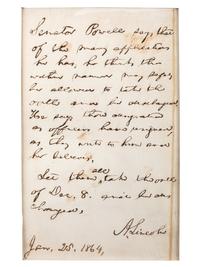 Senator Powell says that
of the many applications
he has, he thinks the
within named may safely
be allowed to take the
oath and be discharged.
He says those designated
as officers have resigned,
as they write to him and
he believes.
Let them all take the oath
of Dec. 8. and be dis-
charged.
A. Lincoln
Jan. 25. 1864.